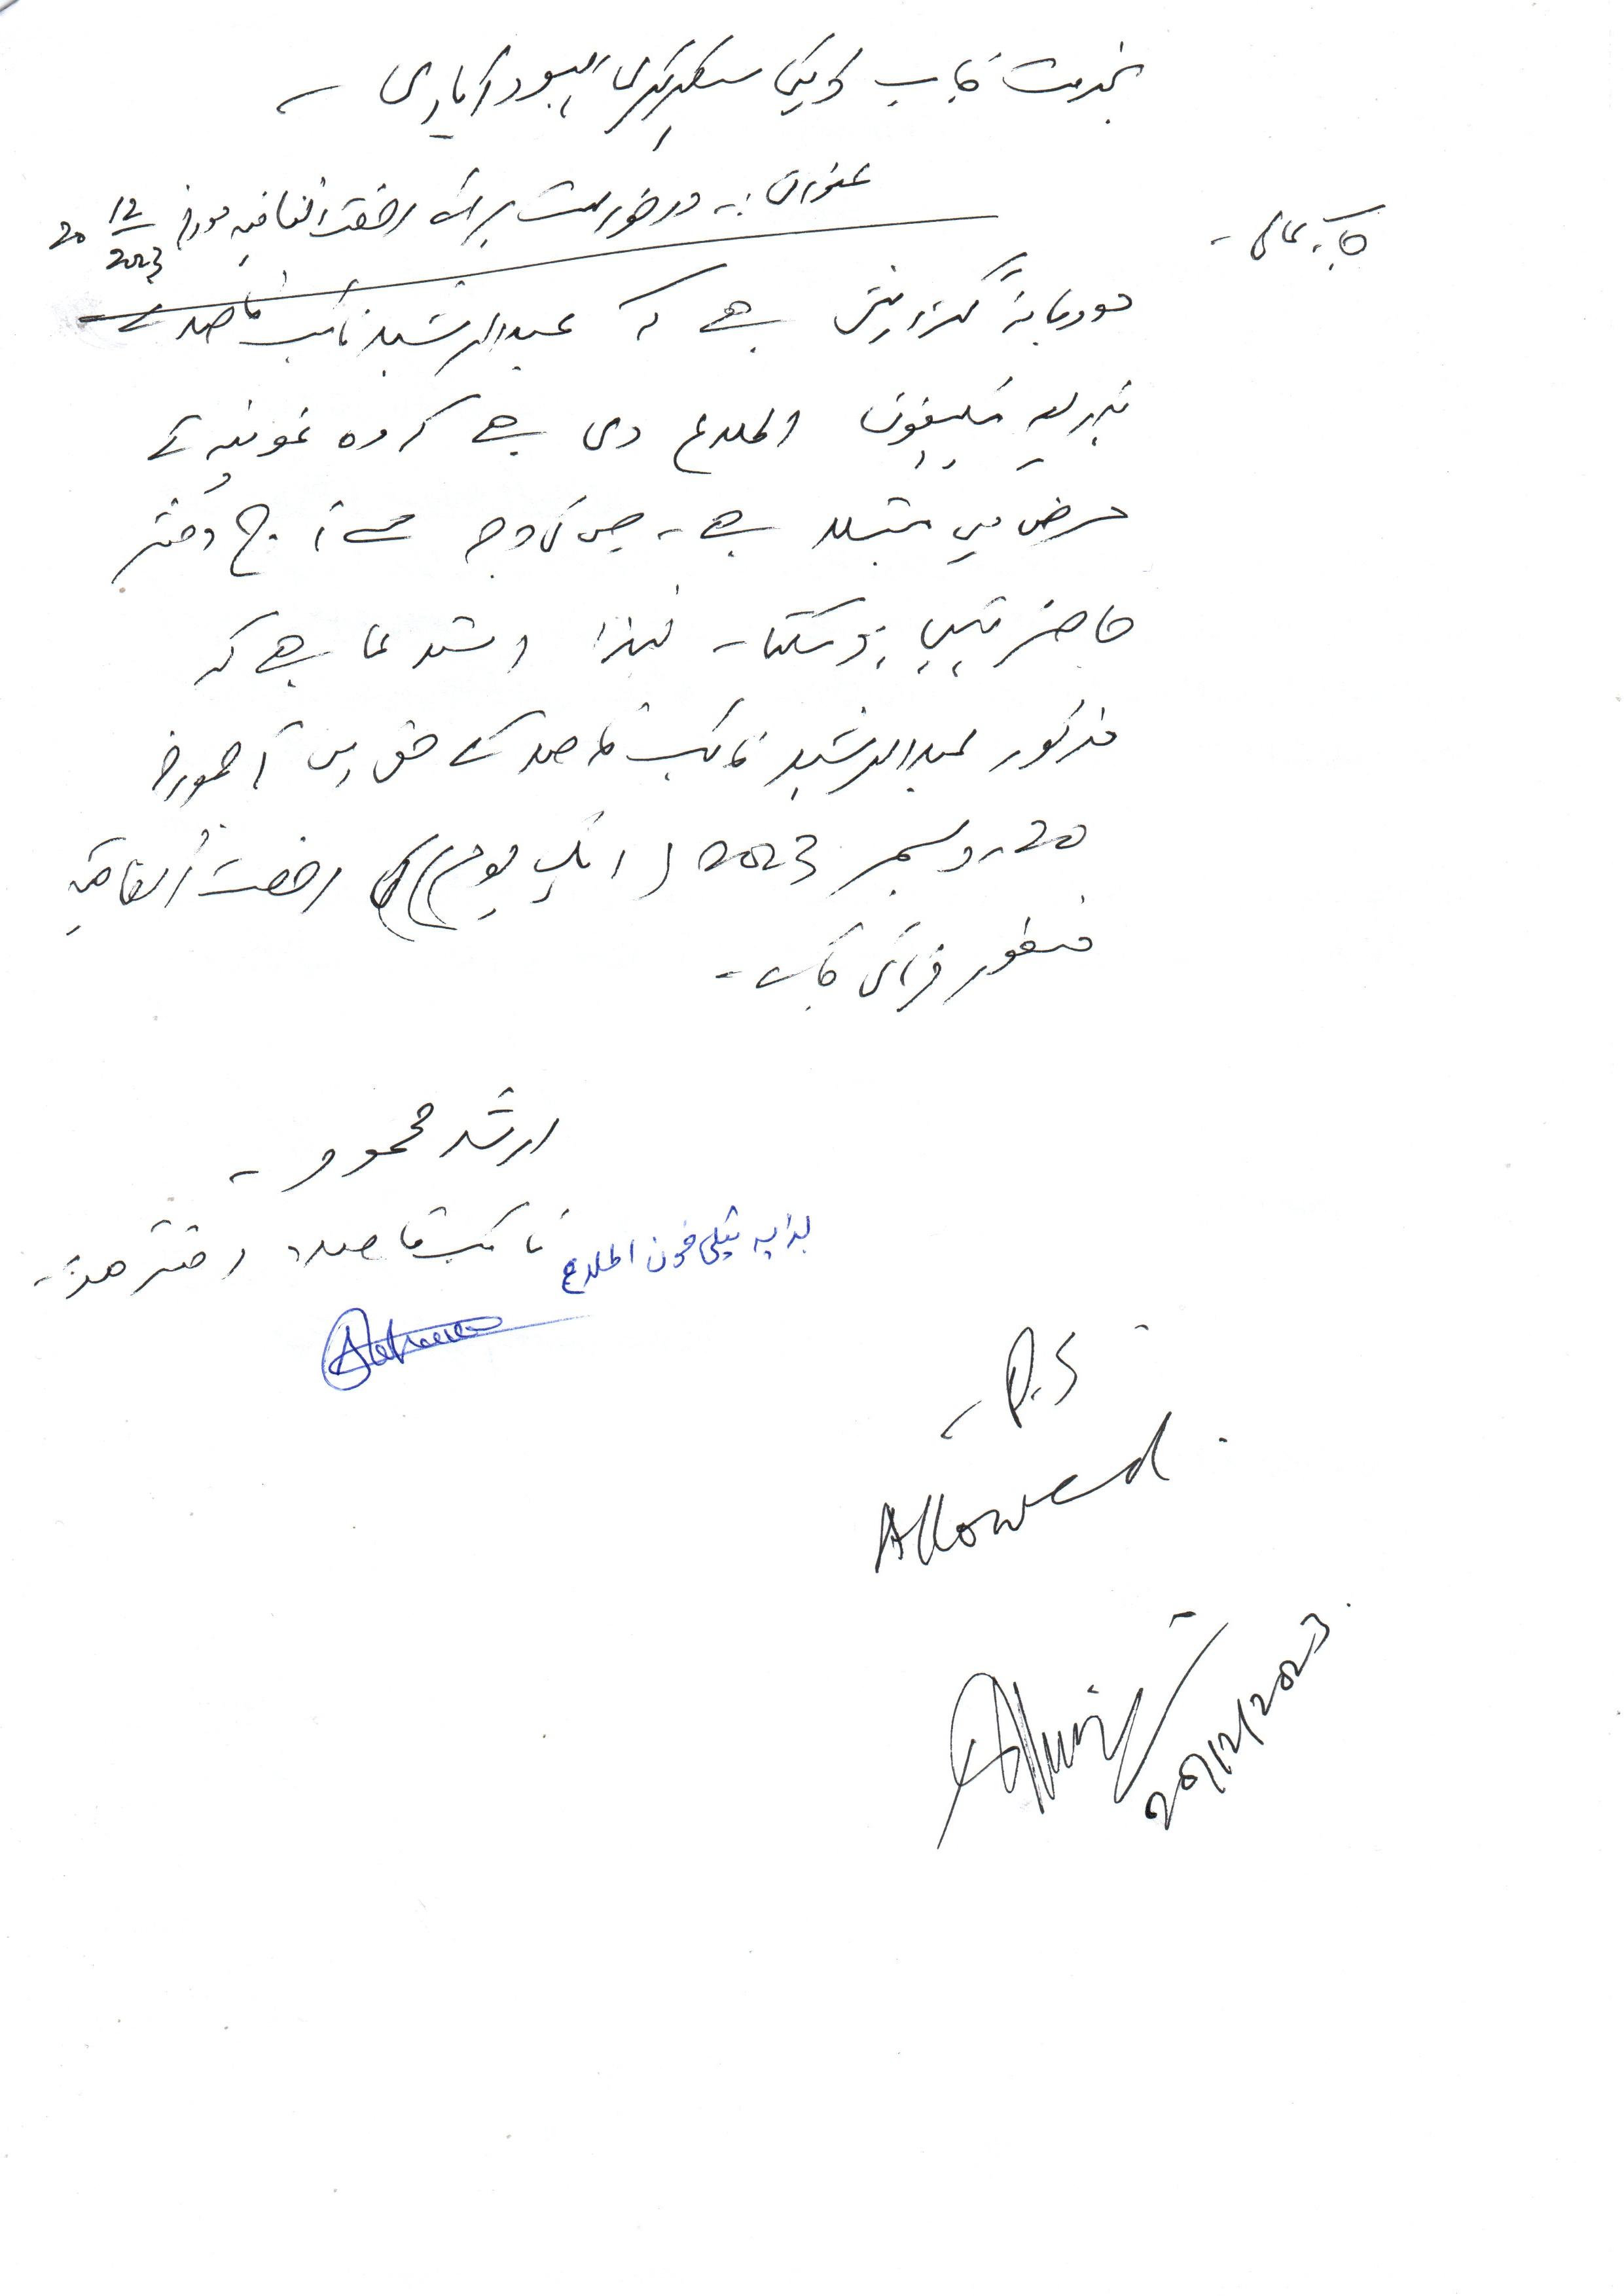 بخدمت جناب ڈپٹی سیکرٹری آبپاشی
عنوان :۔ درخواست برائے رخصت اتفاقیہ مورخہ 20 12/2023
جناب عالی ۔
مودبانہ گزارش ہے کہ عبدالرشید نائب قاصد نے
بذریعہ ٹیلیفون اطلاع دی ہے کہ وہ نمونیہ کے
مرض میں مبتلا ہے۔ جس کی وجہ سے آج دفتر
حاضر نہیں ہو سکتا۔ لہذا استدعا ہے کہ
مذکور عبدالرشید نائب قاصد کے حق میں آج مورخہ
20۔ دسمبر 2023 (ایک یوم) رخصت اتفاقیہ
منظور فرمائی جائے۔
ارشد محمود ۔
نائب قاصد دفتر ھذا۔
بذریعہ ٹیلی فون اطلاع
P.S
Allowed.
20/12/2023.